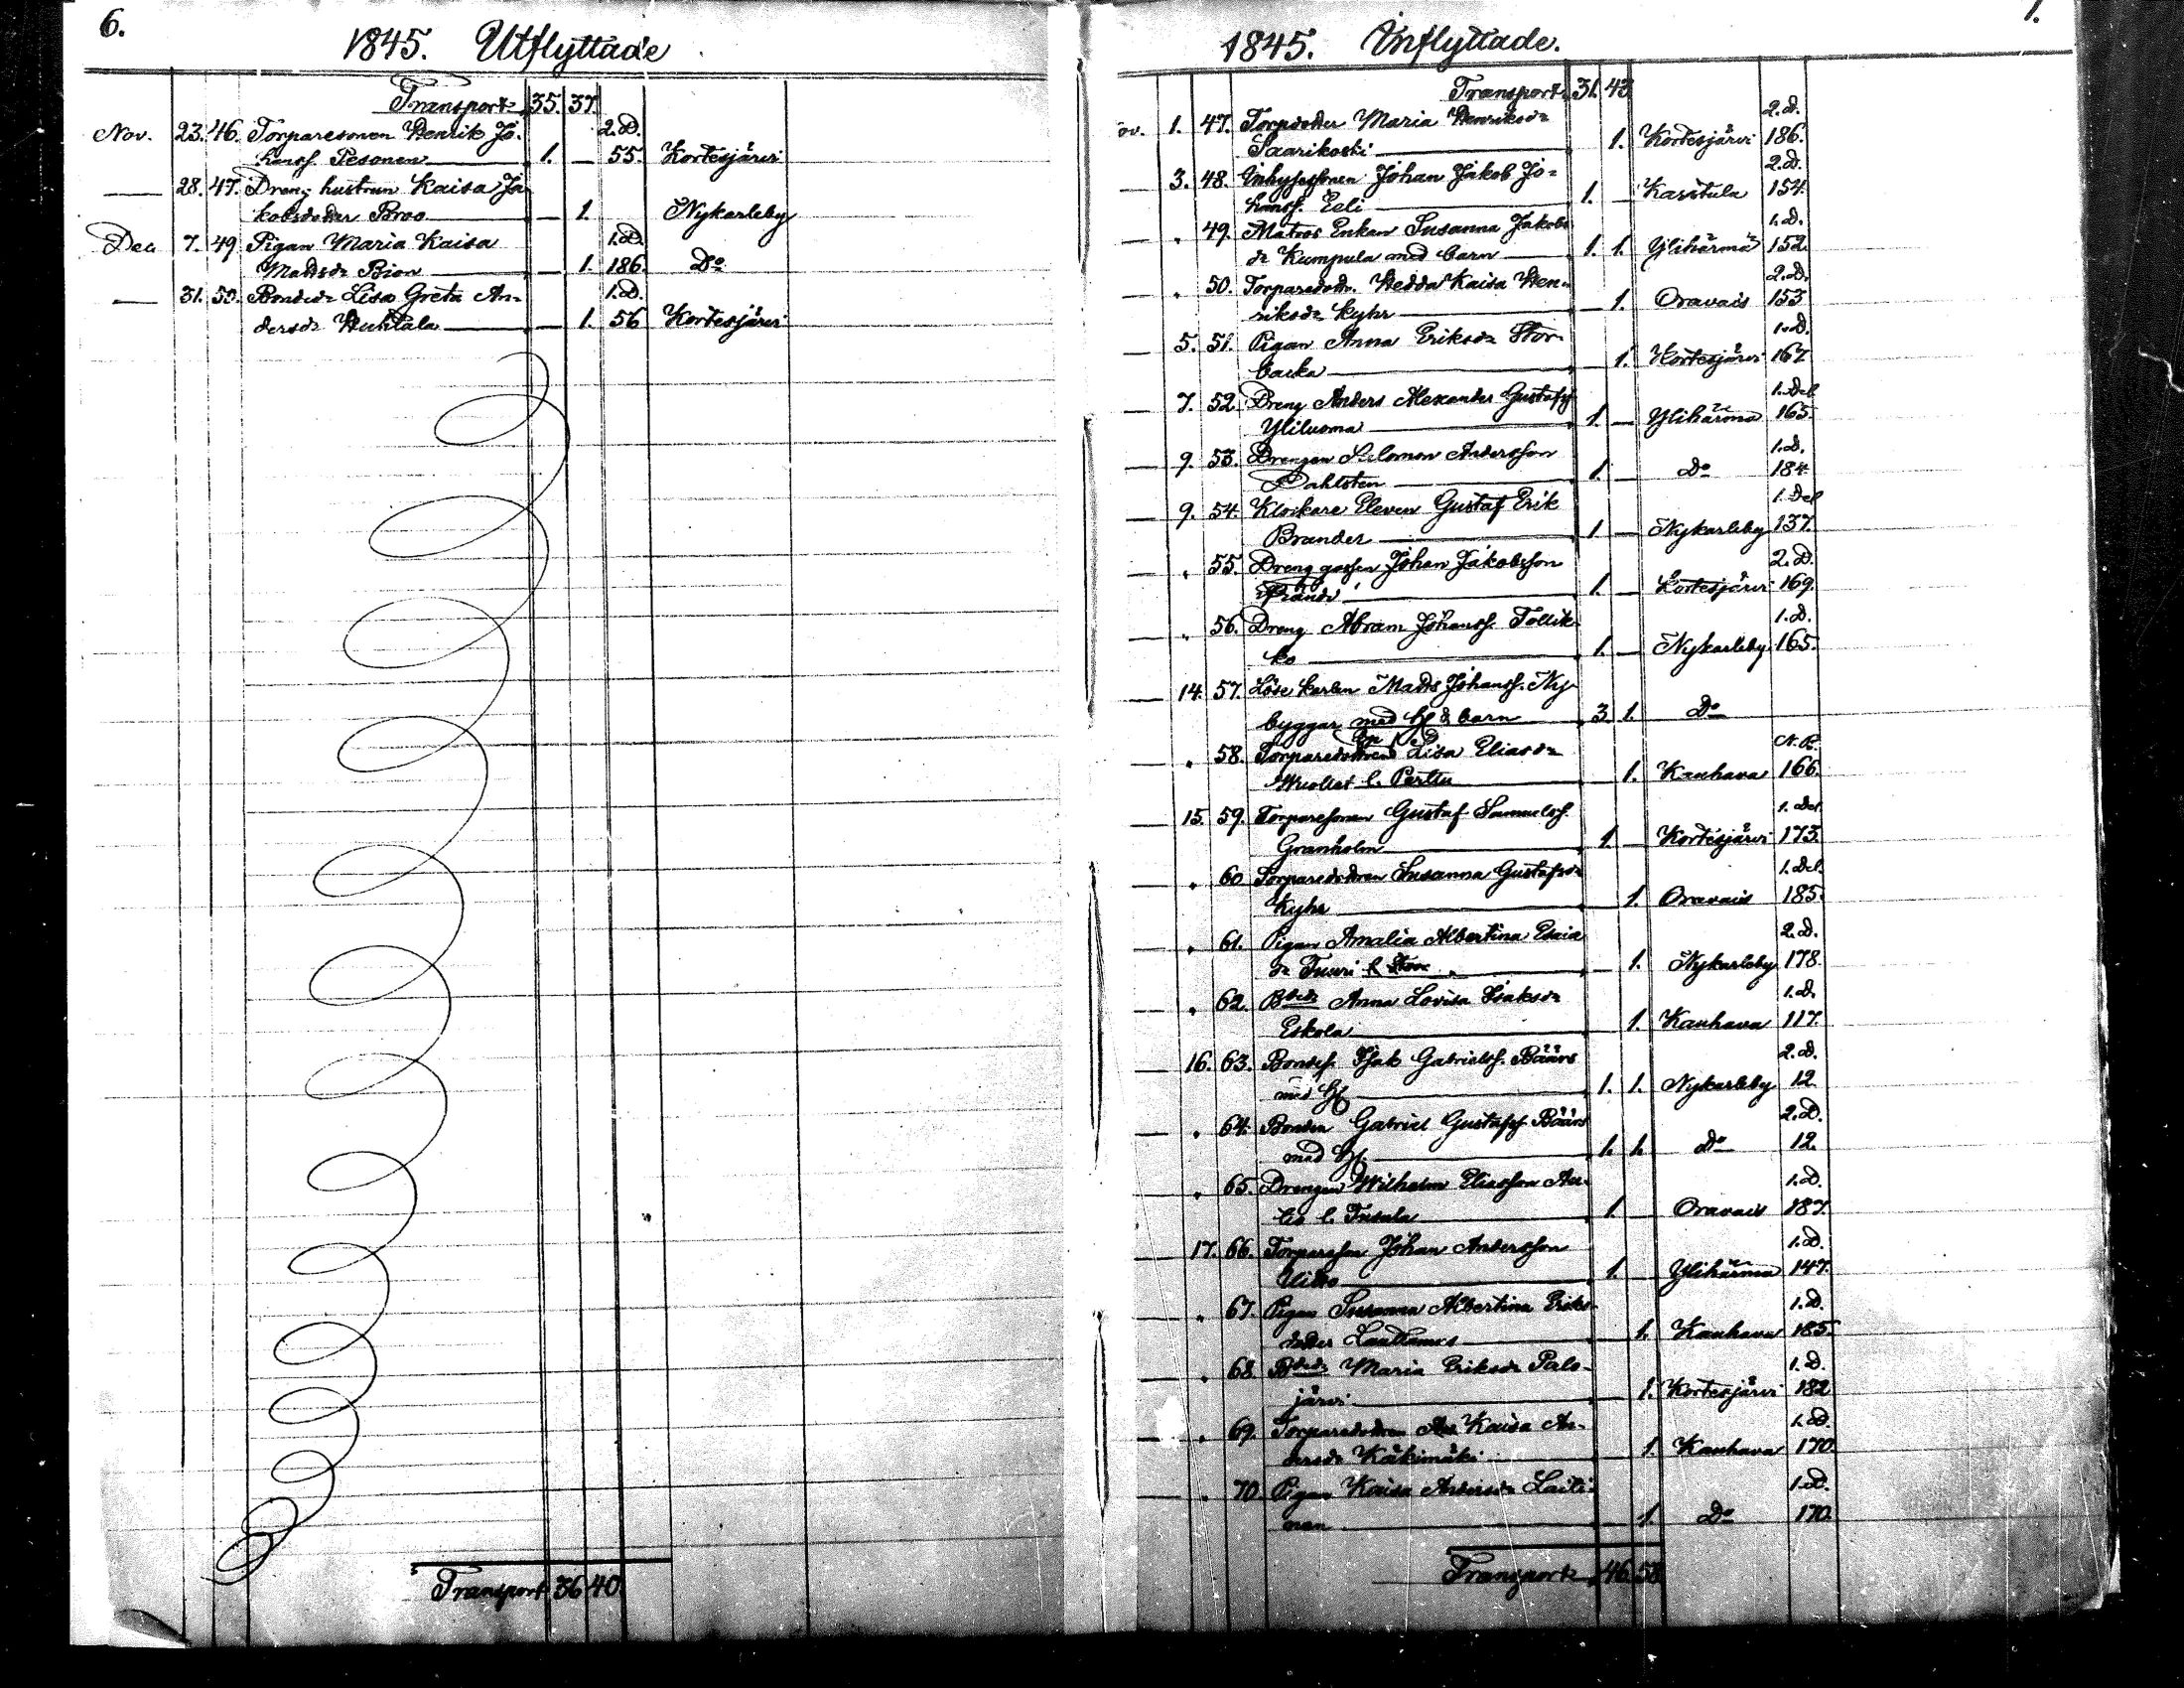 6.
1845. Utflyttade
Transport 35. 37.
Nov. 23. 46. Torparesonen Henrik Jo- 2.D.
hanss. Pesonen 1. — 55. Kortesjärvi
— 28. 47. Dreng hustrun Kaisa Ja
kobsdotter Broo — 1. Nykarleby
Dec 7. 49 Pigan Maria Kaisa 1.D.
Mattsdr Bion — 1. 186. Do
— 31. 50. Bondedr Lisa Greta An- 1.D.
dersdr Huhtala — 1. 56 Kortesjärvi
Transport 36 40.
1.
1845. Inflyttade.
Transport 31. 43
ov. 1. 47. Torpdotter Maria Henriksdr 2.D.
Saarikoski 1. Kortesjärvi 186.
— 3. 48. Inhysessonen Johan Jakob Jo- 2.D.
hanss. Eeli 1. — Karstula 154.
— " 49. Matros Enkan Susanna Jakobs 1.D.
dr Kumpula med barn 1. 1. Ylihärmä 152.
— " 50. Torparedodr. Hedda Kaisa Hen- 2.D.
riksdr Kyhr — 1. Oravais 153
— 5. 51. Pigan Anna Eriksdr Stor- 1.D.
backa — 1. Kortesjärvi 167.
— 7. 52. Dreng Anders Alexander Gustafss 1.Del
Yliluoma 1. — Ylihärmä 165.
— 9. 53. Drengen Salomon Andersson 1.D.
Dahlsten 1. Do 184.
— 9. 54. Klockare Eleven Gustaf Erik 1.Del
Brander 1 — Nykarleby 137.
— " 55. Dreng gossen Johan Jakobsson 2.D.
1. — Kortesjärvi 169.
— " 56. Dreng Abram Johanss. Tollik- 1.D.
ko 1. — Nykarleby 165.
— 14. 57. Löse karlen Matts Johanss. Ny-
byggar med H & barn 3. 1. Do
— " 58. Torparedottren Lisa Eliasdr N.R.
l. Perttu 1. Kauhava 166.
— 15. 59. Torparesonen Gustaf Samuelss. 1.Del
Granholm 1. — Kortesjärvi 173.
— " 60 Torparedottren Susanna Gustafsdr 1.Del.
Kyhr 1. Oravais 185.
— " 61. Pigan Amalia Albertina Esaia 2.D.
dr Tuuri — 1. Nykarleby 178.
— " 62. Bdedr Anna Lovisa Isaksdr 1.D.
Eskola 1. Kauhava 117.
— 16. 63. Bondes. Isak Gabrielss. Bäärs 2.D.
med H 1. 1. Nykarleby 12
— " 64. Bonden Gabriel Gustafss. Bäärs 2.D.
med H. 1. 1. Do 12.
— " 65. Drengen Wilhelm Eliasson An- 1.D.
l. Tusala 1. Oravais 187.
— 17. 66. Torpareson Johan Andersson 1.D.
1. Ylihärmä 147.
— " 67. Pigan Susanna Albertina Eriks- 1.D.
dotter 1. Kauhava 185.
— " 68. Bdedr Maria Eriksdr Palo- 1.D.
järvi 1. Kortesjärvi 182
— " 69. Torparedottren Kaisa An- 1.D.
dersdr Käkimäki 1. Kauhava 170.
— " 70 Pigan Kaisa Andersdr Laiti- 1.D.
nen — 1. Do 170.
Transport 46. 58